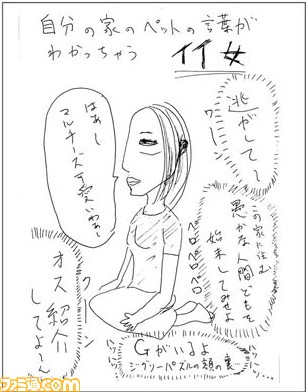 自分の家のペットの言葉が
わかっちゃう
イイ女
逃がして〜
ワーン
はあ〜
マルナーズ可愛いわあ〜
この家に住む
愚かな人間どもを
始末してみせよ
ペロペロペロ
オス紹介
してよ〜ん
クーン
Gがいるよ
ジグソーパズルの額の裏
ハッハッ
ハッハッ
ファミ通.com